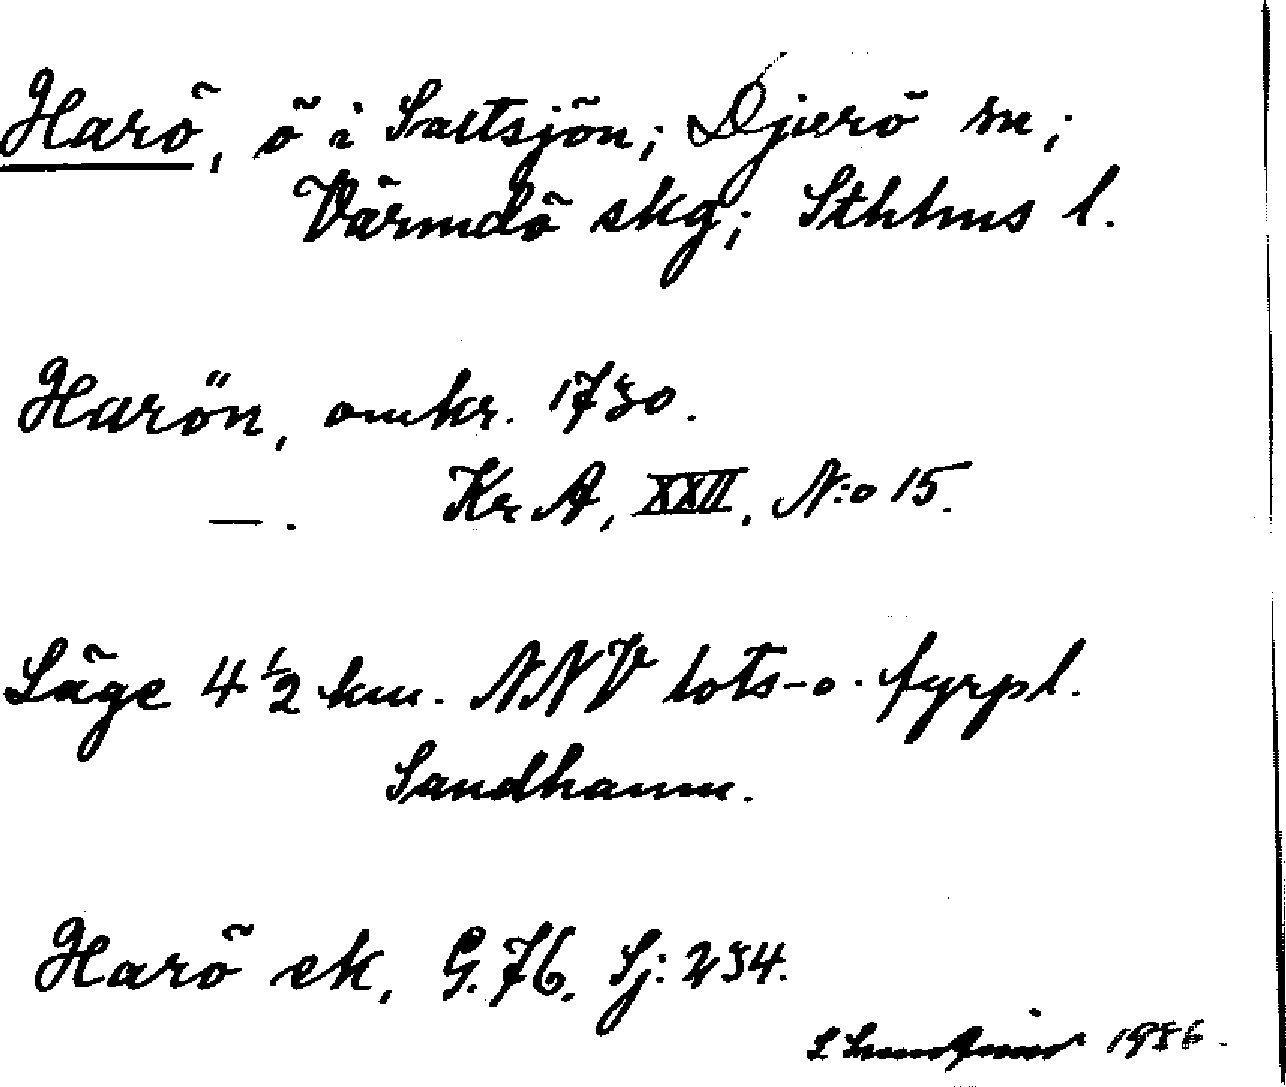 Harö, ö i Saltsjön; Djurö sn;
Värmdö skg; Sthlms l.
Harön, omkr. 1730.
—. Kr A, XXII, N:o 15.
Läge 4 ½ km. NNV lots- o. fyrpl.
Sandhamn.
Harö ek, G. 76. Sj: 234.
1936.